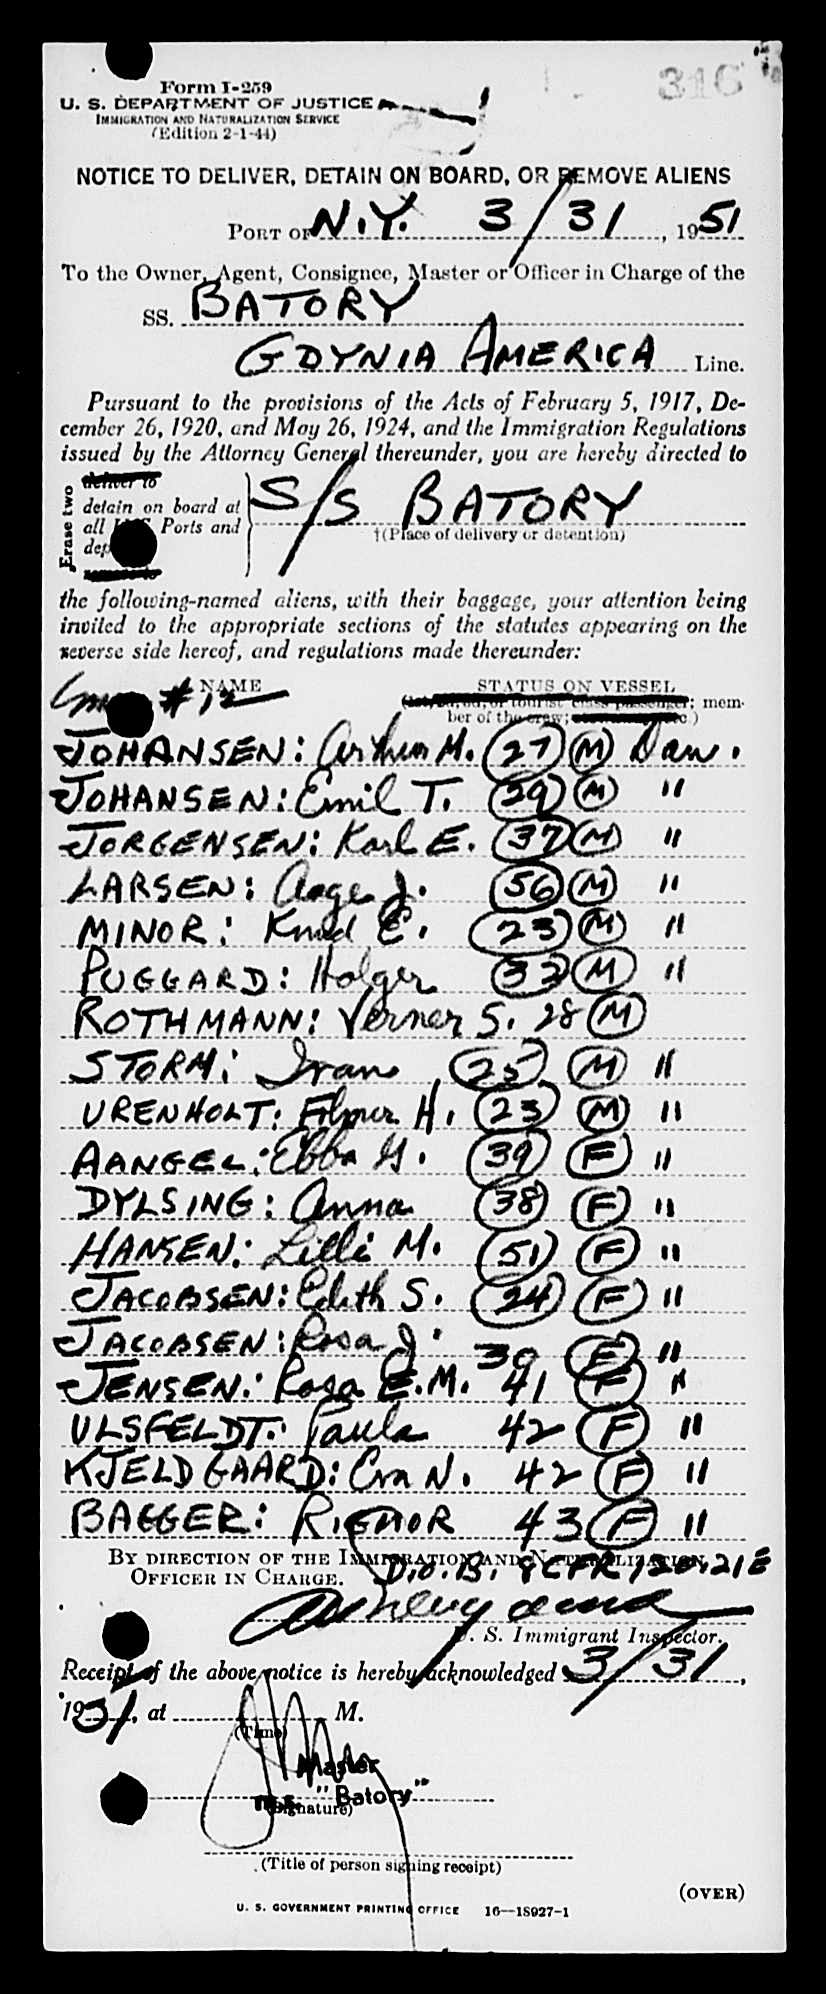 316
Form I-259
U. S. DEPARTMENT OF JUSTICE
IMMIGRATION AND NATURALIZATION SERVICE
(Edition 2-1-44)
NOTICE TO DELIVER, DETAIN ON BOARD, OR REMOVE ALIENS
PORT OF N.Y. 3/31, 1951
To the Owner, Agent, Consignee, Master or Officer in Charge of the
SS. BATORY
GDYNIA AMERICA Line.
Pursuant to the provisions of the Acts of February 5, 1917, De-
cember 26, 1920, and May 26, 1924, and the Immigration Regulations
issued by the Attorney General thereunder, you are hereby directed to
Erase two
deliver to
detain on board at
all Ports and
S/S BATORY
†(Place of delivery or detention)
the following-named aliens, with their baggage, your attention being
invited to the appropriate sections of the statutes appearing on the
reverse side hereof, and regulations made thereunder:
NAME STATUS ON VESSEL
# 12 (1st, 2d, 3d, or tourist class passenger; mem-
ber of the crew;
JOHANSEN: Arthur M. 27 M Dan.
JOHANSEN: Emil T. 29 M "
JORGENSEN: Karl E. 37 M "
LARSEN: Aage J. 56 M "
MINOR: Knud E. 23 M "
PUGGARD: Holger 32 M "
ROTHMANN: Verner S. 28 M
STORM: Ivan 25 M "
URENHOLT: Elmer H. 23 M "
AANGEL: Ebba G. 39 F "
DYLSING: Anna 38 F "
HANSEN: Lilli M. 51 F "
JACOBSEN: Edith S. 24 F "
JACOBSEN: Rosa J. 30 F "
JENSEN: Rosa E.M. 41 F "
ULSFELDT: Paula 42 F "
KJELDGAARD: Eva N. 42 F "
BAGGER: RIGMOR 43 F "
BY DIRECTION OF THE IMMIGRATION AND NATURALIZATION
OFFICER IN CHARGE. D.O.B. 8 CFR 120.21E
U. S. Immigrant Inspector.
Receipt of the above notice is hereby acknowledged 3/31,
1951, at M.
(Time)
Master
m.s. "Batory"
(Signature)
(Title of person signing receipt)
(OVER)
U. S. GOVERNMENT PRINTING OFFICE 16—18927-1